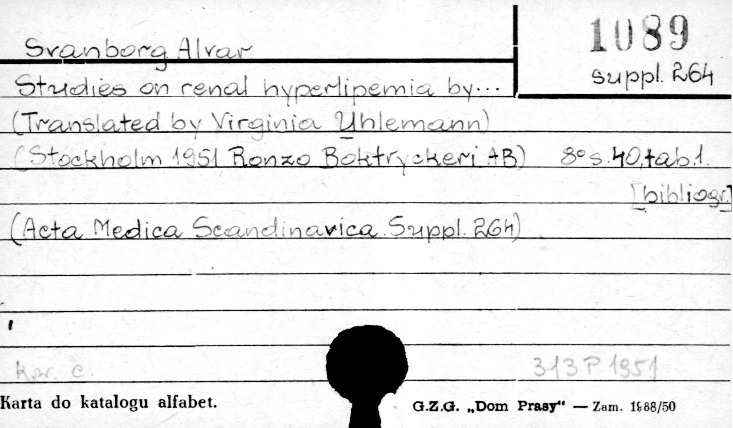 Svanborg Alvar
1089
suppl. 264
Studies on renal hyperlipemia by...
(Translated by Virginia Uhlemann)
(Stockholm 1951 Ronzo Boktryckeri AB) 8° s. 40, tab 1.
[bibliogr.]
(Acta Medica Scandinavica. Suppl. 264)
313 P 1951
Karta do katalogu alfabet.
G.Z.G. „Dom Prasy” — Zam. 1988/50